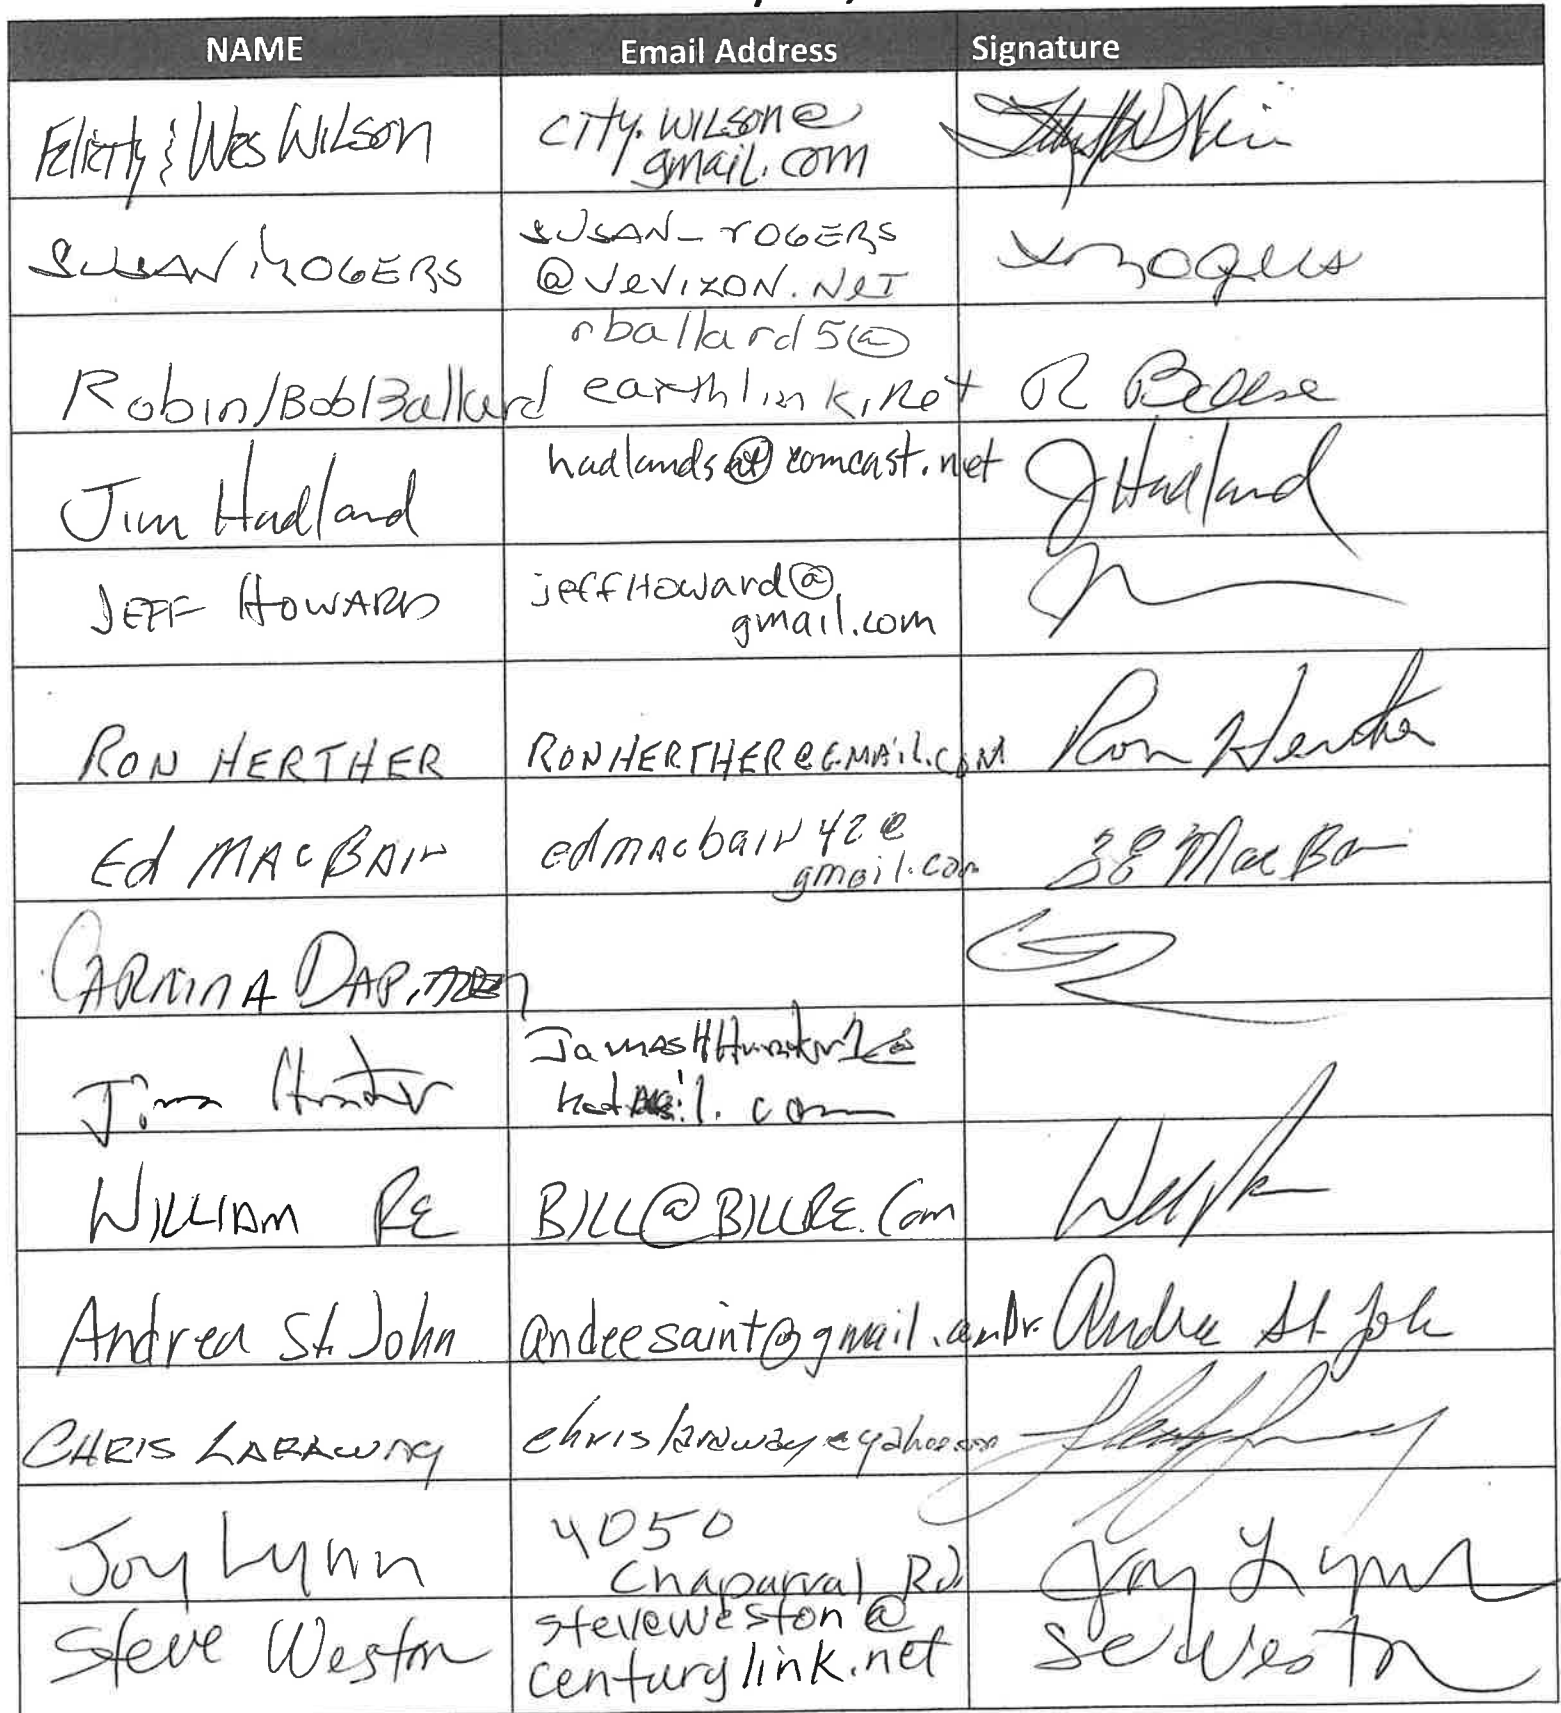 NAME Email Address Signature
Felicity & Wes Wilson city.wilson@
gmail.com
Susan Rogers susan_rogers
@verizon.net Rogers
rballard5@
Robin/Bob Ballard earthlink.net R
Jim Hadland hadlands@comcast.net J Hadland
Jeff Howard jeffHoward@
gmail.com
RON HERTHER RONHERTHER@GMAIL.COM Ron Herther
Ed MacBain edmacbain42@
gmail.com MacBain
Carmina
Jim Hunter JamesHHunter1@
hotmail.com
William Re BILL@BILLRE.Com
Andrea St. John andeesaint@gmail.com Dr. Andrea St. John
CHRIS LARAWAY chrislaraway@yahoo.com
Joy Lynn 4050
Chaparral Rd. Joy Lynn
Steve Weston steveweston@
centurylink.net SE Weston